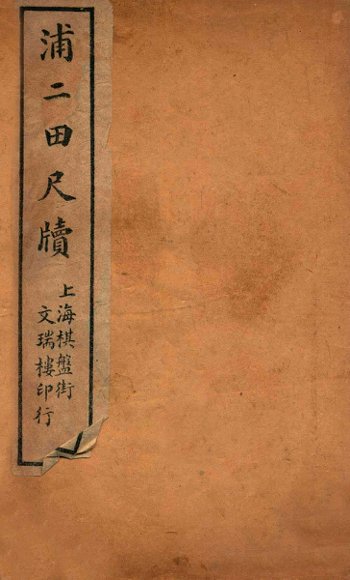 浦二田尺牘
上海棋盤街
文瑞樓印行